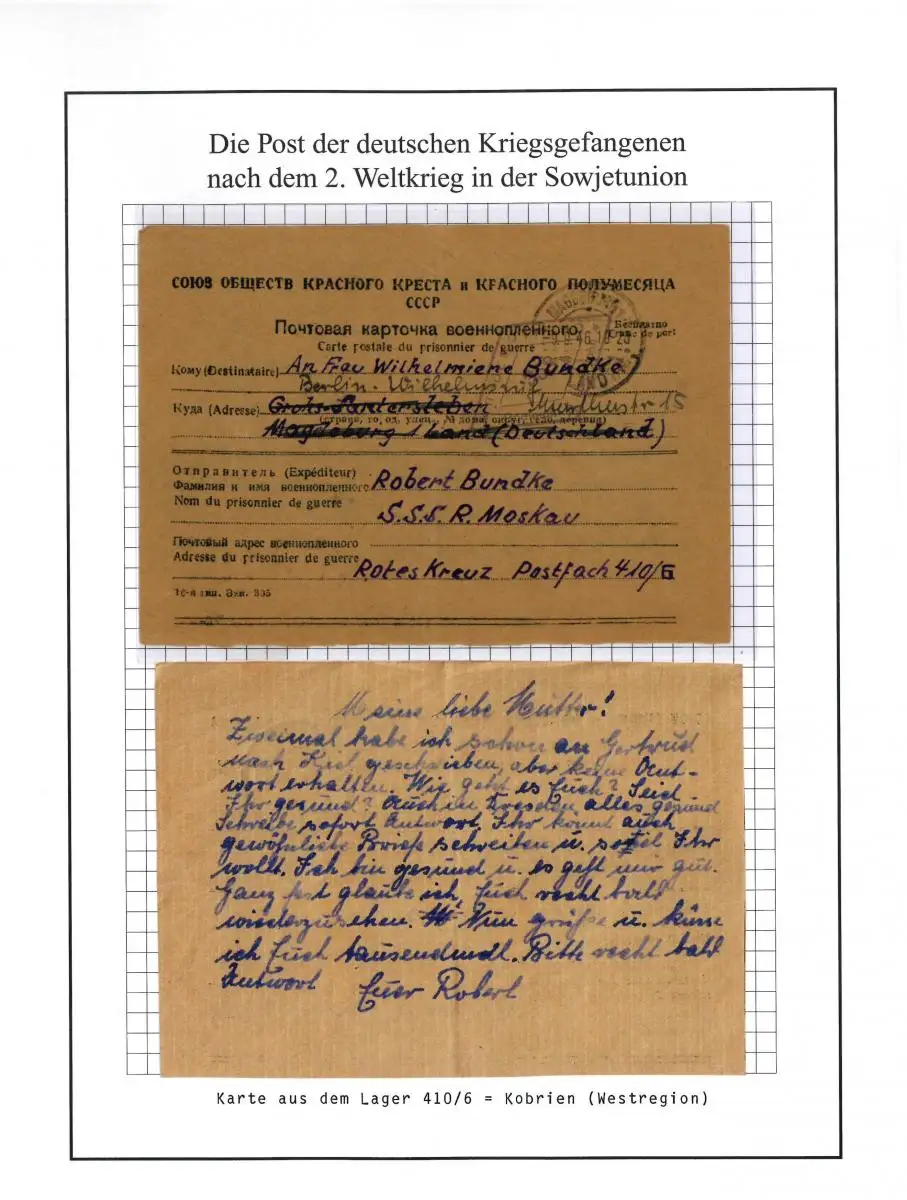 Die Post der deutschen Kriegsgefangenen
nach dem 2. Weltkrieg in der Sowjetunion
СОЮЗ ОБЩЕСТВ КРАСНОГО КРЕСТА и КРАСНОГО ПОЛУМЕСЯЦА
СССР
Почтовая карточка военнопленного
Бесплатно
Carte postale du prisonnier de guerre
Franc de port
Кому (Destinataire) An Frau Wilhelmiene Bundke
Berlin-Wilhelmsruh
Куда (Adresse) Groß-Santersleben 15
(страна, город, улица, № дома, округ, село, деревня)
Magdeburg / Land (Deutschland)
Отправитель (Expéditeur)
Фамилия и имя военнопленного Robert Bundke
Nom du prisonnier de guerre
S.S.S.R. Moskau
Почтовый адрес военнопленного
Adresse du prisonnier de guerre Rotes Kreuz Postfach 410/6
16-я тип. Зак. 395
Meine liebe Mutter!
Zweimal habe ich schon an Gertrud
nach Kiel geschrieben, aber keine Ant-
wort erhalten. Wie geht es Euch? Seid
Ihr gesund? Auch in Dresden alles gesund
Schreibe sofort Antwort. Ihr könnt auch
gewöhnliche Briefe schreiben u. soviel Ihr
wollt. Ich bin gesund u. es geht mir gut.
Ganz fest glaube ich, Euch recht bald
wiederzusehen. Nun grüße u. küsse
ich Euch tausendmal. Bitte recht bald
Antwort Euer Robert
Karte aus dem Lager 410/6 = Kobrien (Westregion)